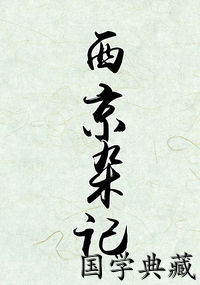 西京杂记
国学典藏